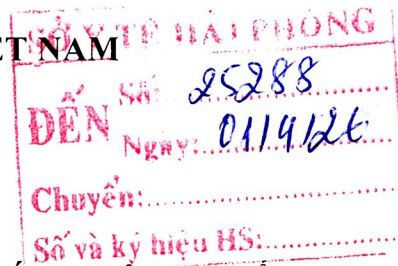 SỞ Y TẾ HẢI PHÒNG
ỆT NAM
ĐẾN
Số: 25288
Ngày: 01/4/26
Chuyển:
Số và ký hiệu HS: